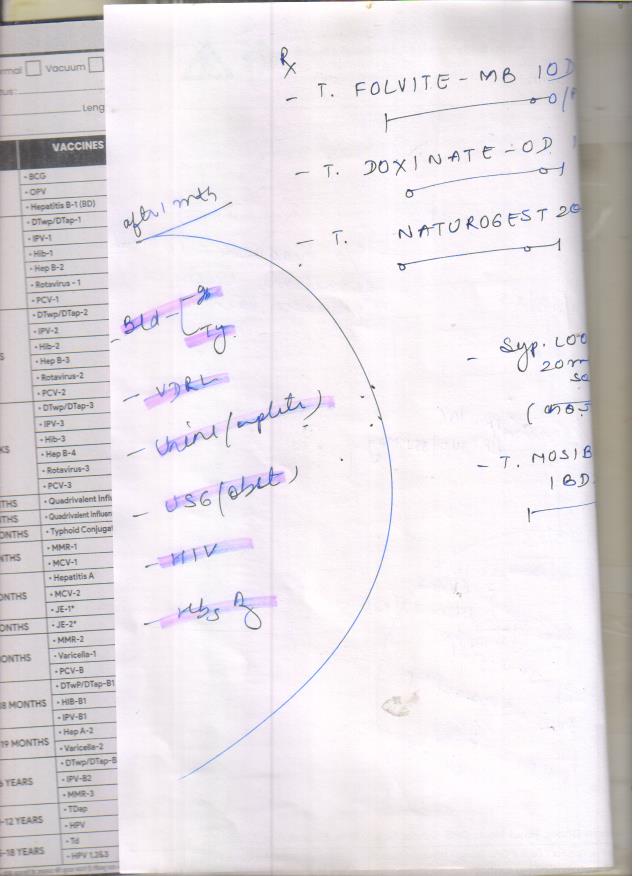 rmal Vacuum
Leng
VACCINES
• BCG
• OPV
• Hepatitis B-1 (BD)
• DTwp/DTap-1
• IPV-1
• Hib-1
• Hep B-2
• Rotavirus - 1
• PCV-1
• DTwp/DTap-2
• IPV-2
• Hib-2
• Hep B-3
• Rotavirus-2
• PCV-2
• DTwp/DTap-3
• IPV-3
• Hib-3
• Hep B-4
• Rotavirus-3
• PCV-3
• Quadrivalent Influ
• Quadrivalent Influen
• Typhoid Conjuga
• MMR-1
• MCV-1
• Hepatitis A
• MCV-2
• JE-1*
• JE-2*
• MMR-2
• Varicella-1
• PCV-B
• DTwP/DTap-B1
• HIB-B1
• IPV-B1
• Hep A-2
• Varicella-2
• DTwp/DTap-B
• IPV-B2
• MMR-3
• TDap
• HPV
• Td
• HPV 1,2&3
KS
THS
THS
ONTHS
NTHS
ONTHS
ONTHS
ONTHS
8 MONTHS
19 MONTHS
YEARS
-12 YEARS
-18 YEARS
after 1 mth
- Bld -
- VDRL
- Urine (complete)
- USG (obst)
- HIV
- HbsAg
Rx
- T. FOLVITE - MB 1OD
- T. DOXINATE - OD
- T. NATUROGEST 20
- Syp. LOO
20m
- T. MOSIB
1 BD